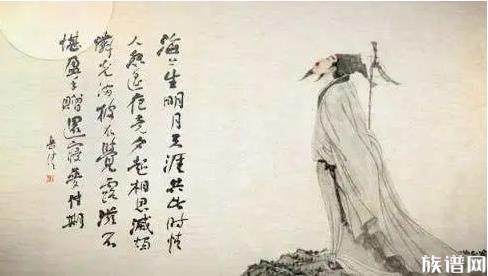 海上生明月天涯共此时情
人怨遥夜竟夕起相思滅燭
憐光满披衣覺露滋不
堪盈手贈還寢夢佳期
族谱网